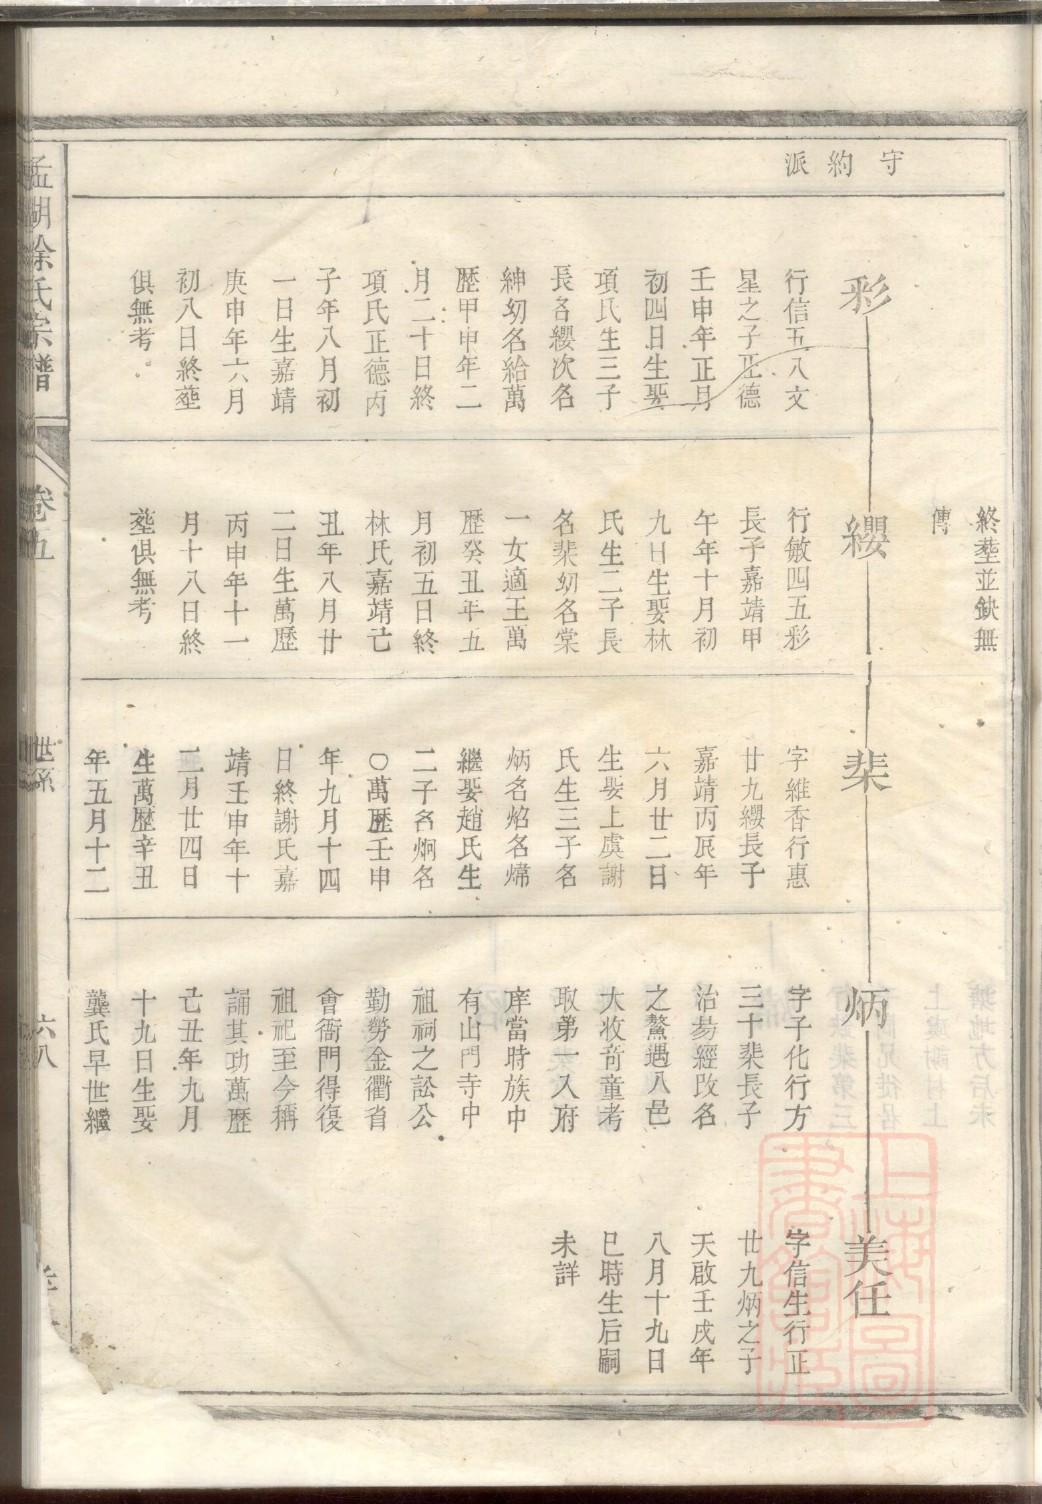 守約派
終塟並缺無
傳
彩
行信五八文
星之子正德
壬申年正月
初四日生娶
項氏生三子
長名纓次名
紳㓜名給萬
歷甲申年二
月二十日終
項氏正德丙
子年八月初
一日生嘉靖
庚申年六月
初八日終塟
俱無考
纓
行敏四五彩
長子嘉靖甲
午年十月初
九日生娶林
氏生二子長
名棐㓜名棠
一女適王萬
歷癸丑年五
月初五日終
林氏嘉靖己
丑年八月廿
二日生萬歷
丙申年十一
月十八日終
塟俱無考
棐
字維香行惠
廿九纓長子
嘉靖丙辰年
六月廿二日
生娶上虞謝
氏生三子名
炳名焰名煒
繼娶趙氏生
二子名炯名
〇萬歷壬申
年九月十四
日終謝氏嘉
靖壬申年十
二月廿四日
生萬歷辛丑
年五月十二
炳
字子化行方
三十棐長子
治易經改名
之鰲遇八邑
大收竒童考
取第一入府
庠當時族中
有山門寺中
祖祠之訟公
勤勞金衢省
會衙門得復
祖祀至今稱
誦其功萬歷
己丑年九月
十九日生娶
龔氏早世繼
美任
字信生行正
廿九炳之子
天啟壬戌年
八月十九日
巳時生后嗣
未詳
湖徐氏宗譜
卷五
世系
六八